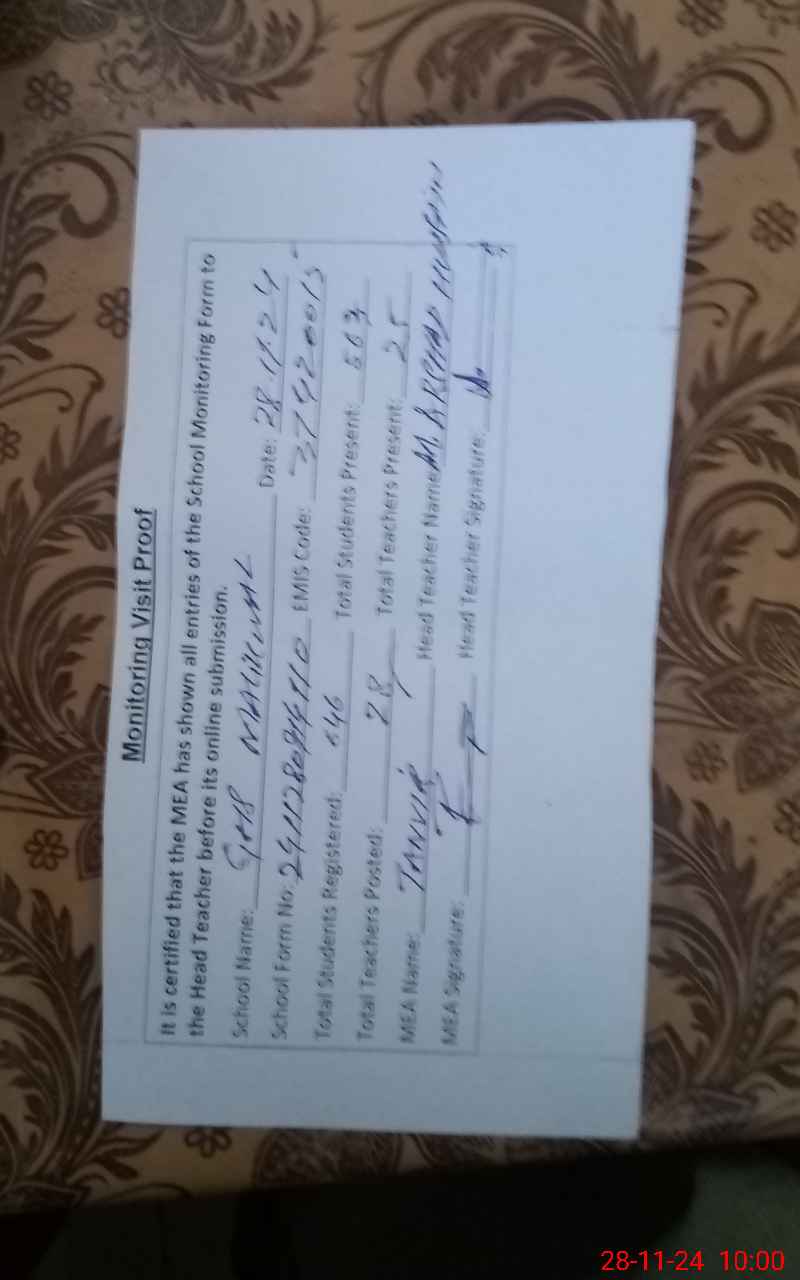 Monitoring Visit Proof
It is certified that the MEA has shown all entries of the School Monitoring Form to
the Head Teacher before its online submission.
School Name: GHS Date: 28.11.24
School Form No: EMIS Code: 37420015
Total Students Registered: 646 Total Students Present: 563
Total Teachers Posted: 28 Total Teachers Present: 25
MEA Name: TANVIR Head Teacher Name: M. ARSHAD HUSSAIN
MEA Signature: Head Teacher Signature:
28-11-24 10:00